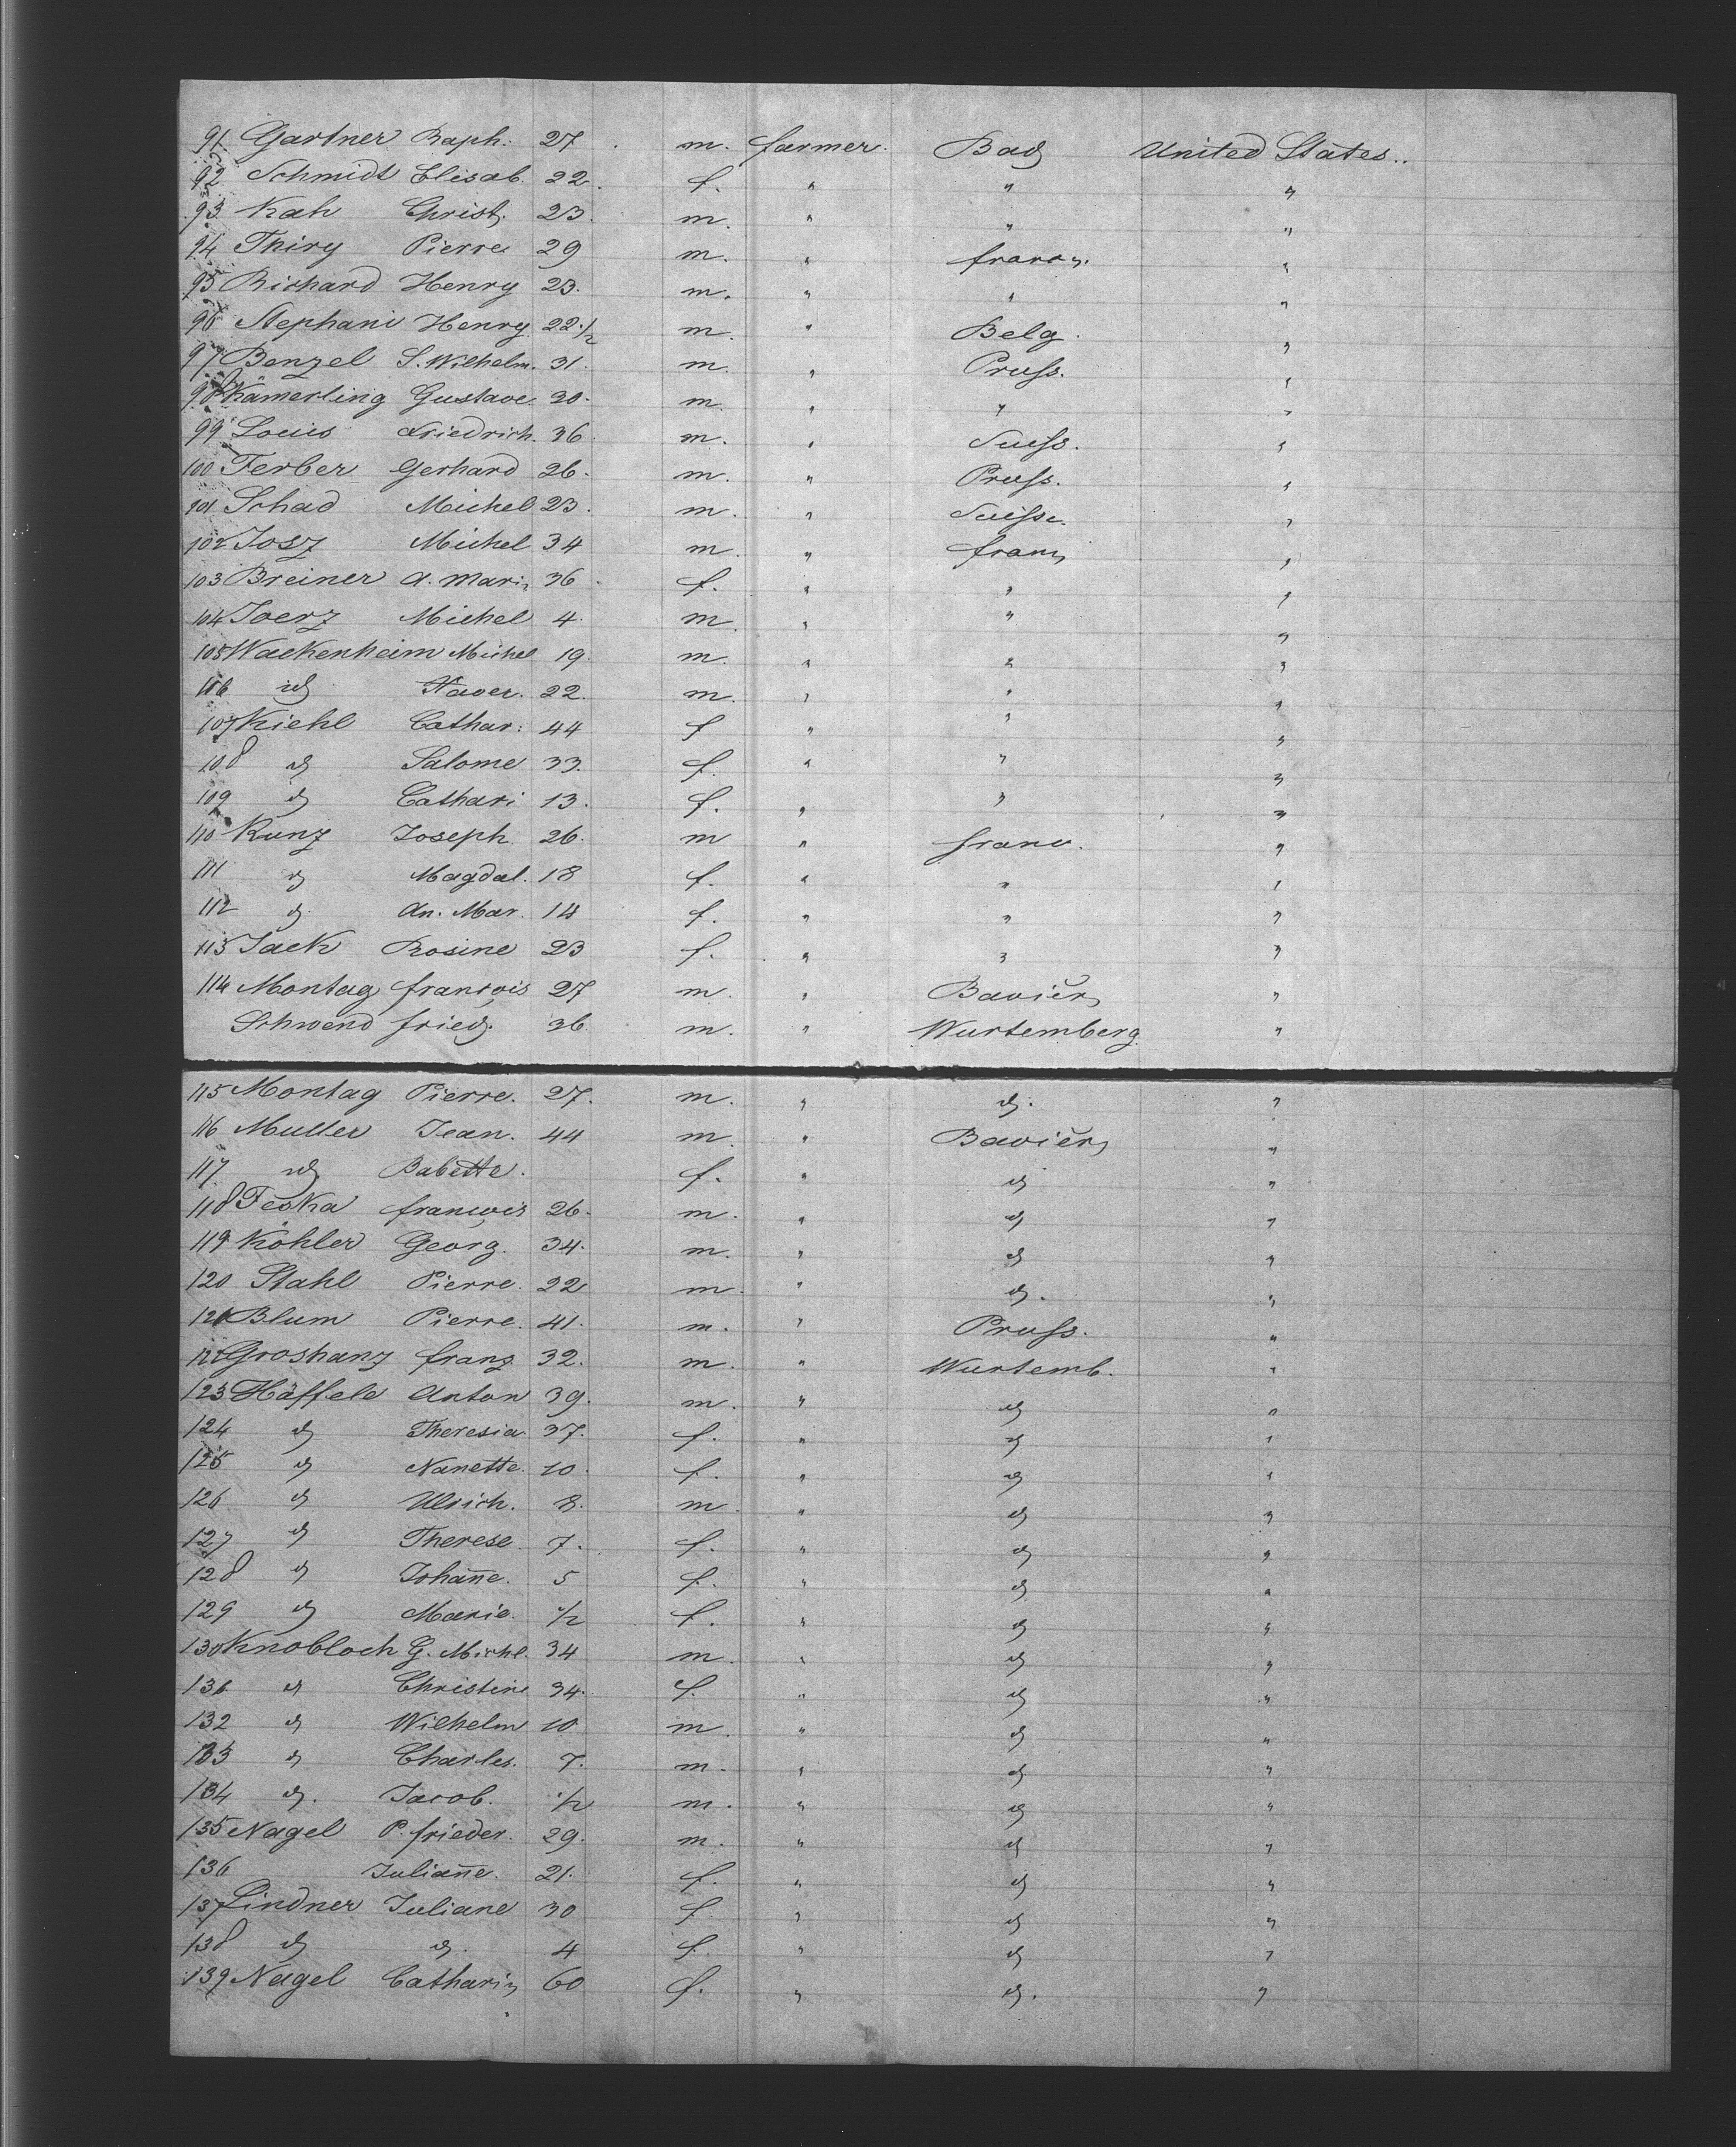 91 Gartner Raph. 27 m. farmer. Bad United States..
92 Schmidt Elisab. 22. f. " " "
93. Kah Christ. 23. m. " " "
94 Thiry Pierre 29 m. " "
95 Richard Henry 23. m. " " "
96 Stephani Henry 22.1/2 m. " Belg. "
97 Benzel S. Wilhelm. 31. m. " Pruss. "
98 Kamerling Gustave. 30. m. " " "
99 Louis Friedrich. 36 m. " Suess. "
100 Ferber Gerhard 26. m. " Pruss. "
101 Schad Michel 23. m. " Suisse. "
102 Josz Michel 34 m. " "
103 Breiner A. Mari 36 f. " " "
104 Joerz Michel 4. m. " " "
105 Wackenheim Michel 19. m. " " "
106 id Xaver. 22. m. " " "
107 Kiehl Cathar: 44 f " " "
108 id Salome 33. f. " " "
109 id Cathari 13. f. " " "
110 Kunz Joseph 26. m " franc. "
111 id Magdal. 18 f. " " "
112 id. An. Mar. 14 f. " " "
113 Jack Rosine 23 f. " " "
114 Montag françois 27 m. " Bavièr "
Schwend fried. 36 m. " Wurtemberg. "
115 Montag Pierre. 27. m. " id. "
116 Muller Jean. 44 m. " Bavièr "
117. id Babette. f. " id "
118 Teska françois 26. m. " id "
119 Köhler Georg. 34. m. " id "
120 Stahl Pierre. 22 m. " id. "
121 Blum Pierre. 41. m. " Pruss. "
122 Groshanz franz 32. m. " Wurtemb. "
123 Häffele Anton 39. m. " id "
124 id Theresia 37. f. " id "
125 id Nanette. 10. f. " id "
126 id Ulrich. 8. m " id "
127 id Therese 7. f. " id "
128 id Johan̄e. 5 f. " id "
129 id Marie. 1/2 f. " id "
130 Knobloch G. Michl. 34 m. " id "
131 id Christine 34. f. " id "
132 id Wilhelm 10 m. " id "
133 id Charles. 7. m. " id "
134 id. Jacob. 1/2 m. " id "
135 Nagel P. frieder. 29. m. " id "
136 Julian̄e. 21. f. " id "
137 Lindner Juliane 30 f. " id "
138 id id. 4 f. " id "
139 Nagel Catharin 60 f. " id. "